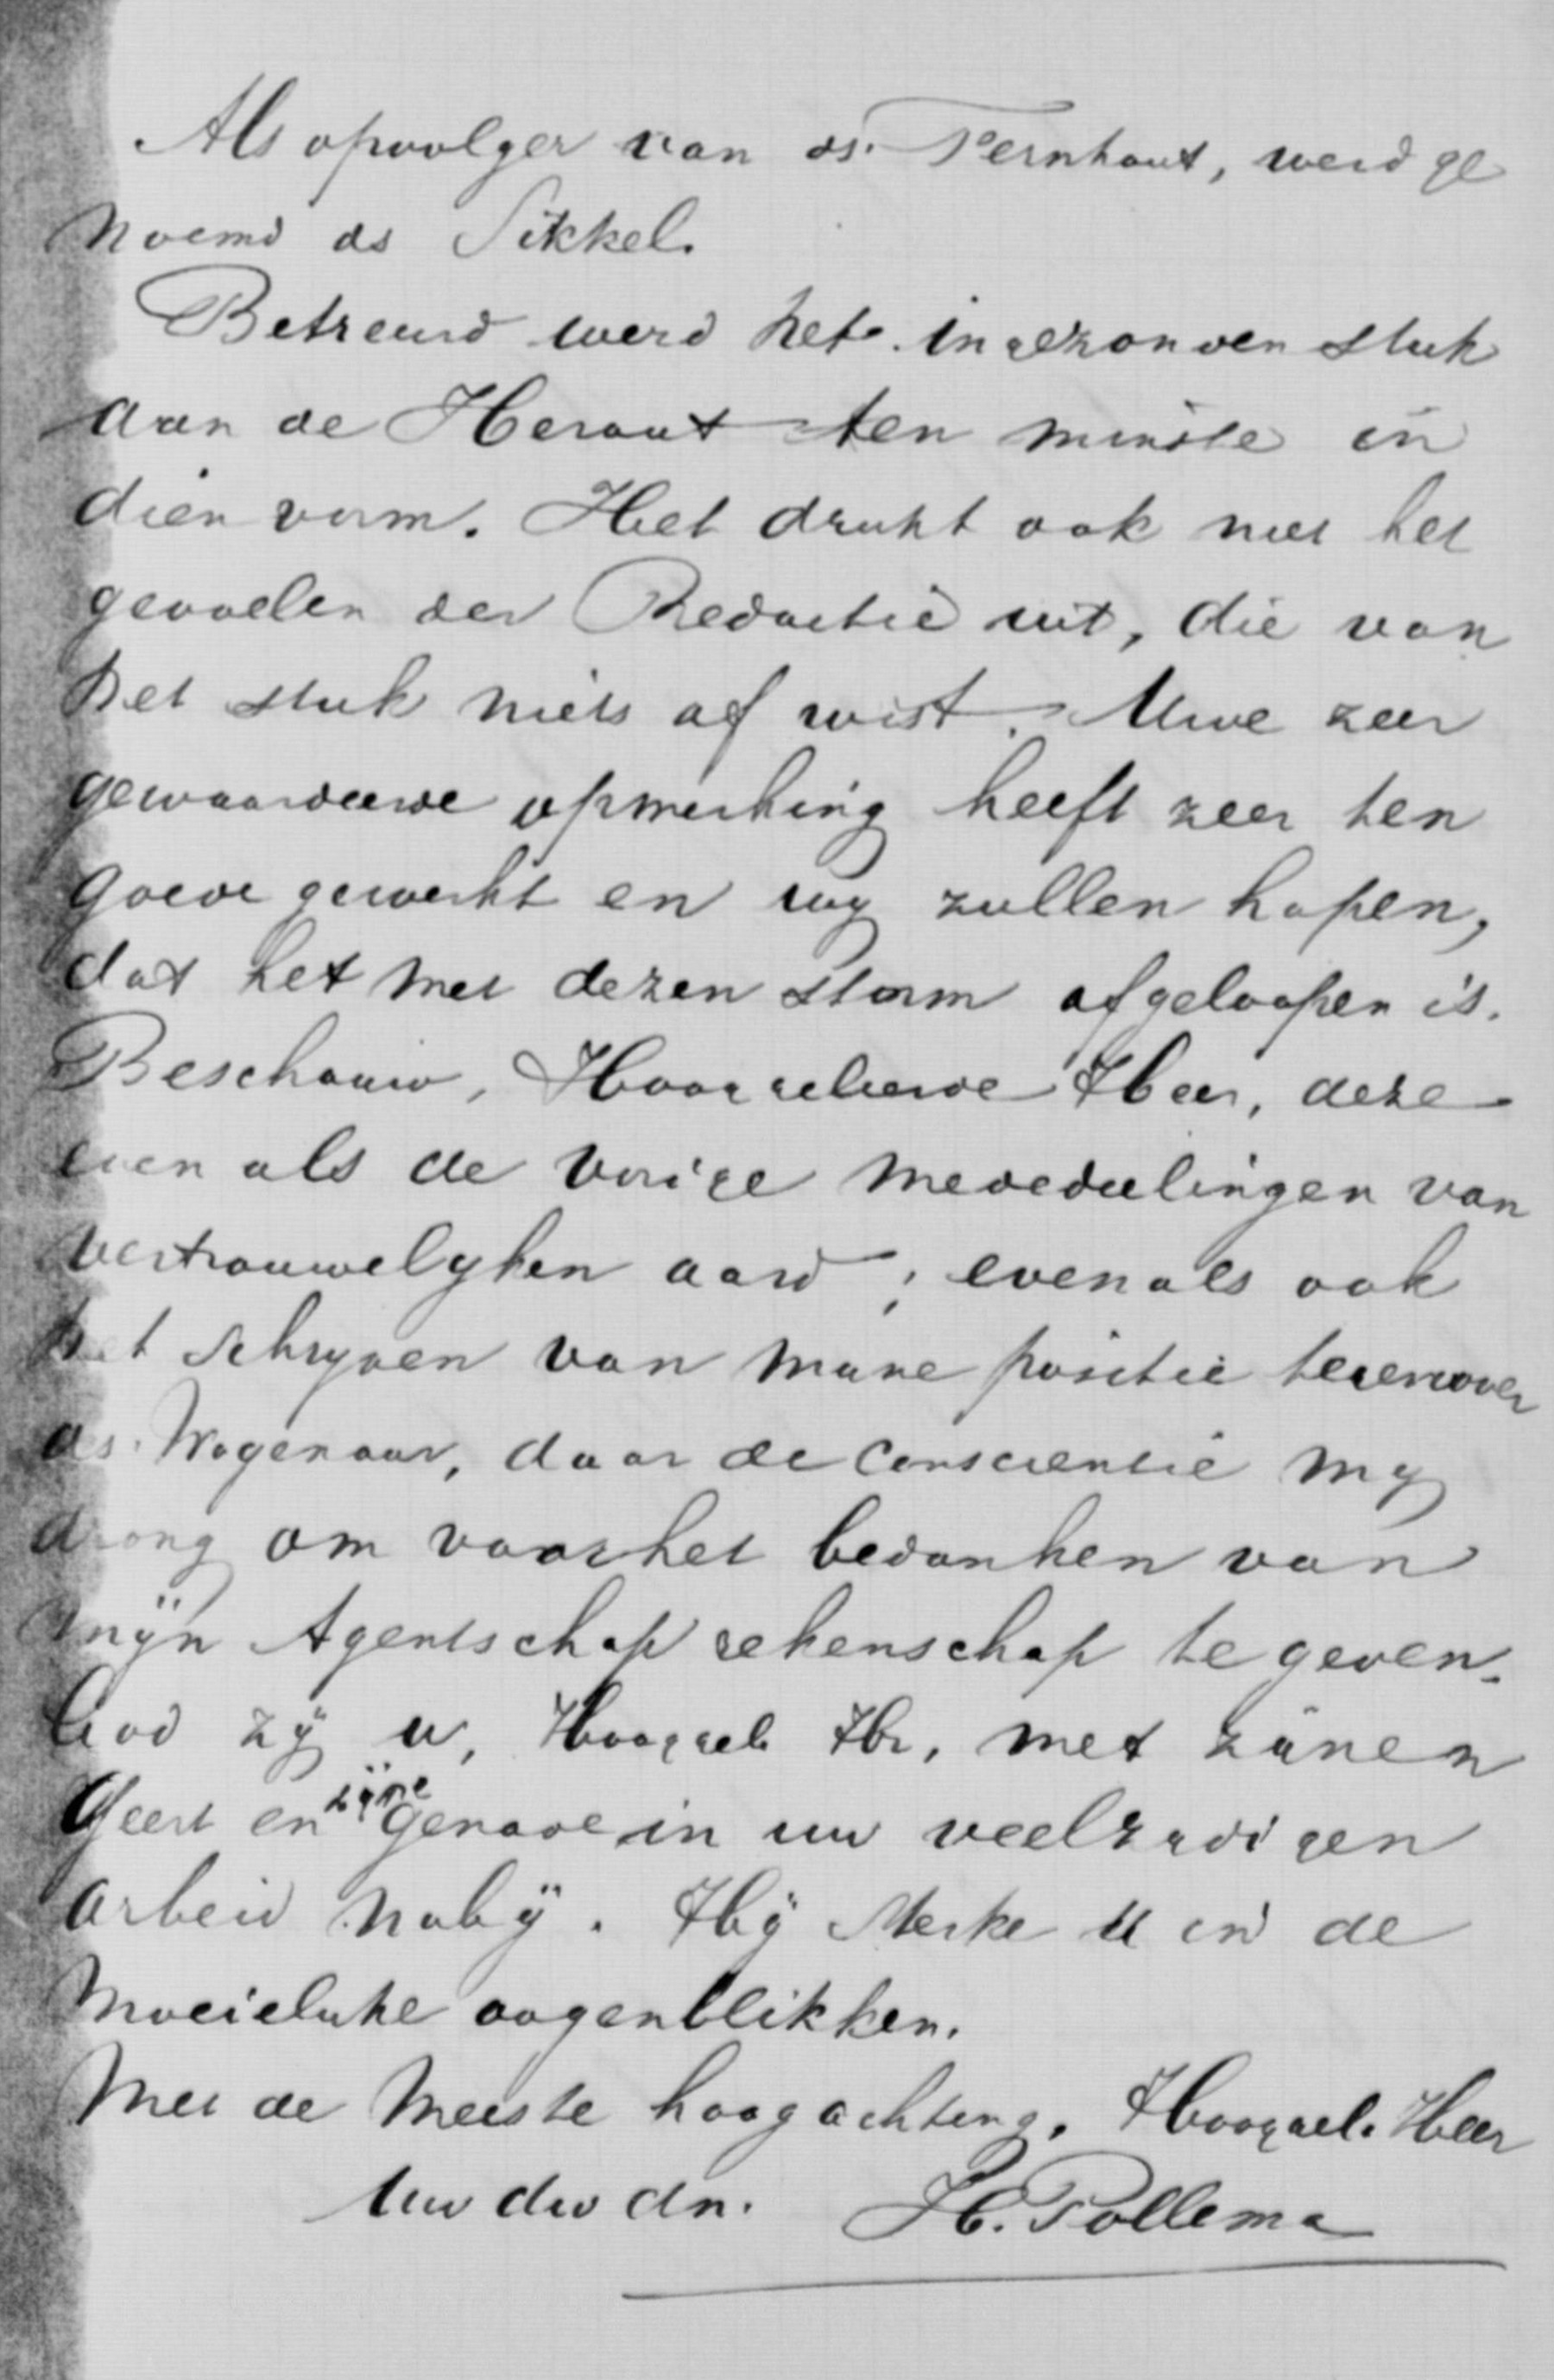 Als opvolger van ds. Fernhout, werd ge
noemd ds Sikkel.
Betreurd werd het ingezonden stuk
aan de Heraut ten minste in
dien vorm. Het drukt ook niet het
gevoelen der Redactie uit, die van
het stuk niets af wist. Uwe zeer
gewaardeerde opmerking heeft zeer ten
goede gewerkt en wy zullen hopen,
dat het met dezen storm afgeloopen is.
Beschouw, Hooggeleerde Heer, deze
even als de vorige mededeelingen van
vertrouwelyken aard; evenals ook
het schryven van mijne positie tegenover
ds. Wagenaar, daar de conscientie my
drong om voor het bedanken van
mÿn Agentschap rekenschap te geven.
God zÿ u, Hooggel. Hr, met zijnen
Geest en zÿne genade in uw veelzydigen
arbeid nabÿ. Hÿ sterke U in de
moeielijke oogenblikken.
Met de meeste hoogachting, Hooggel. Heer
Uw dw dn. H. Pollema